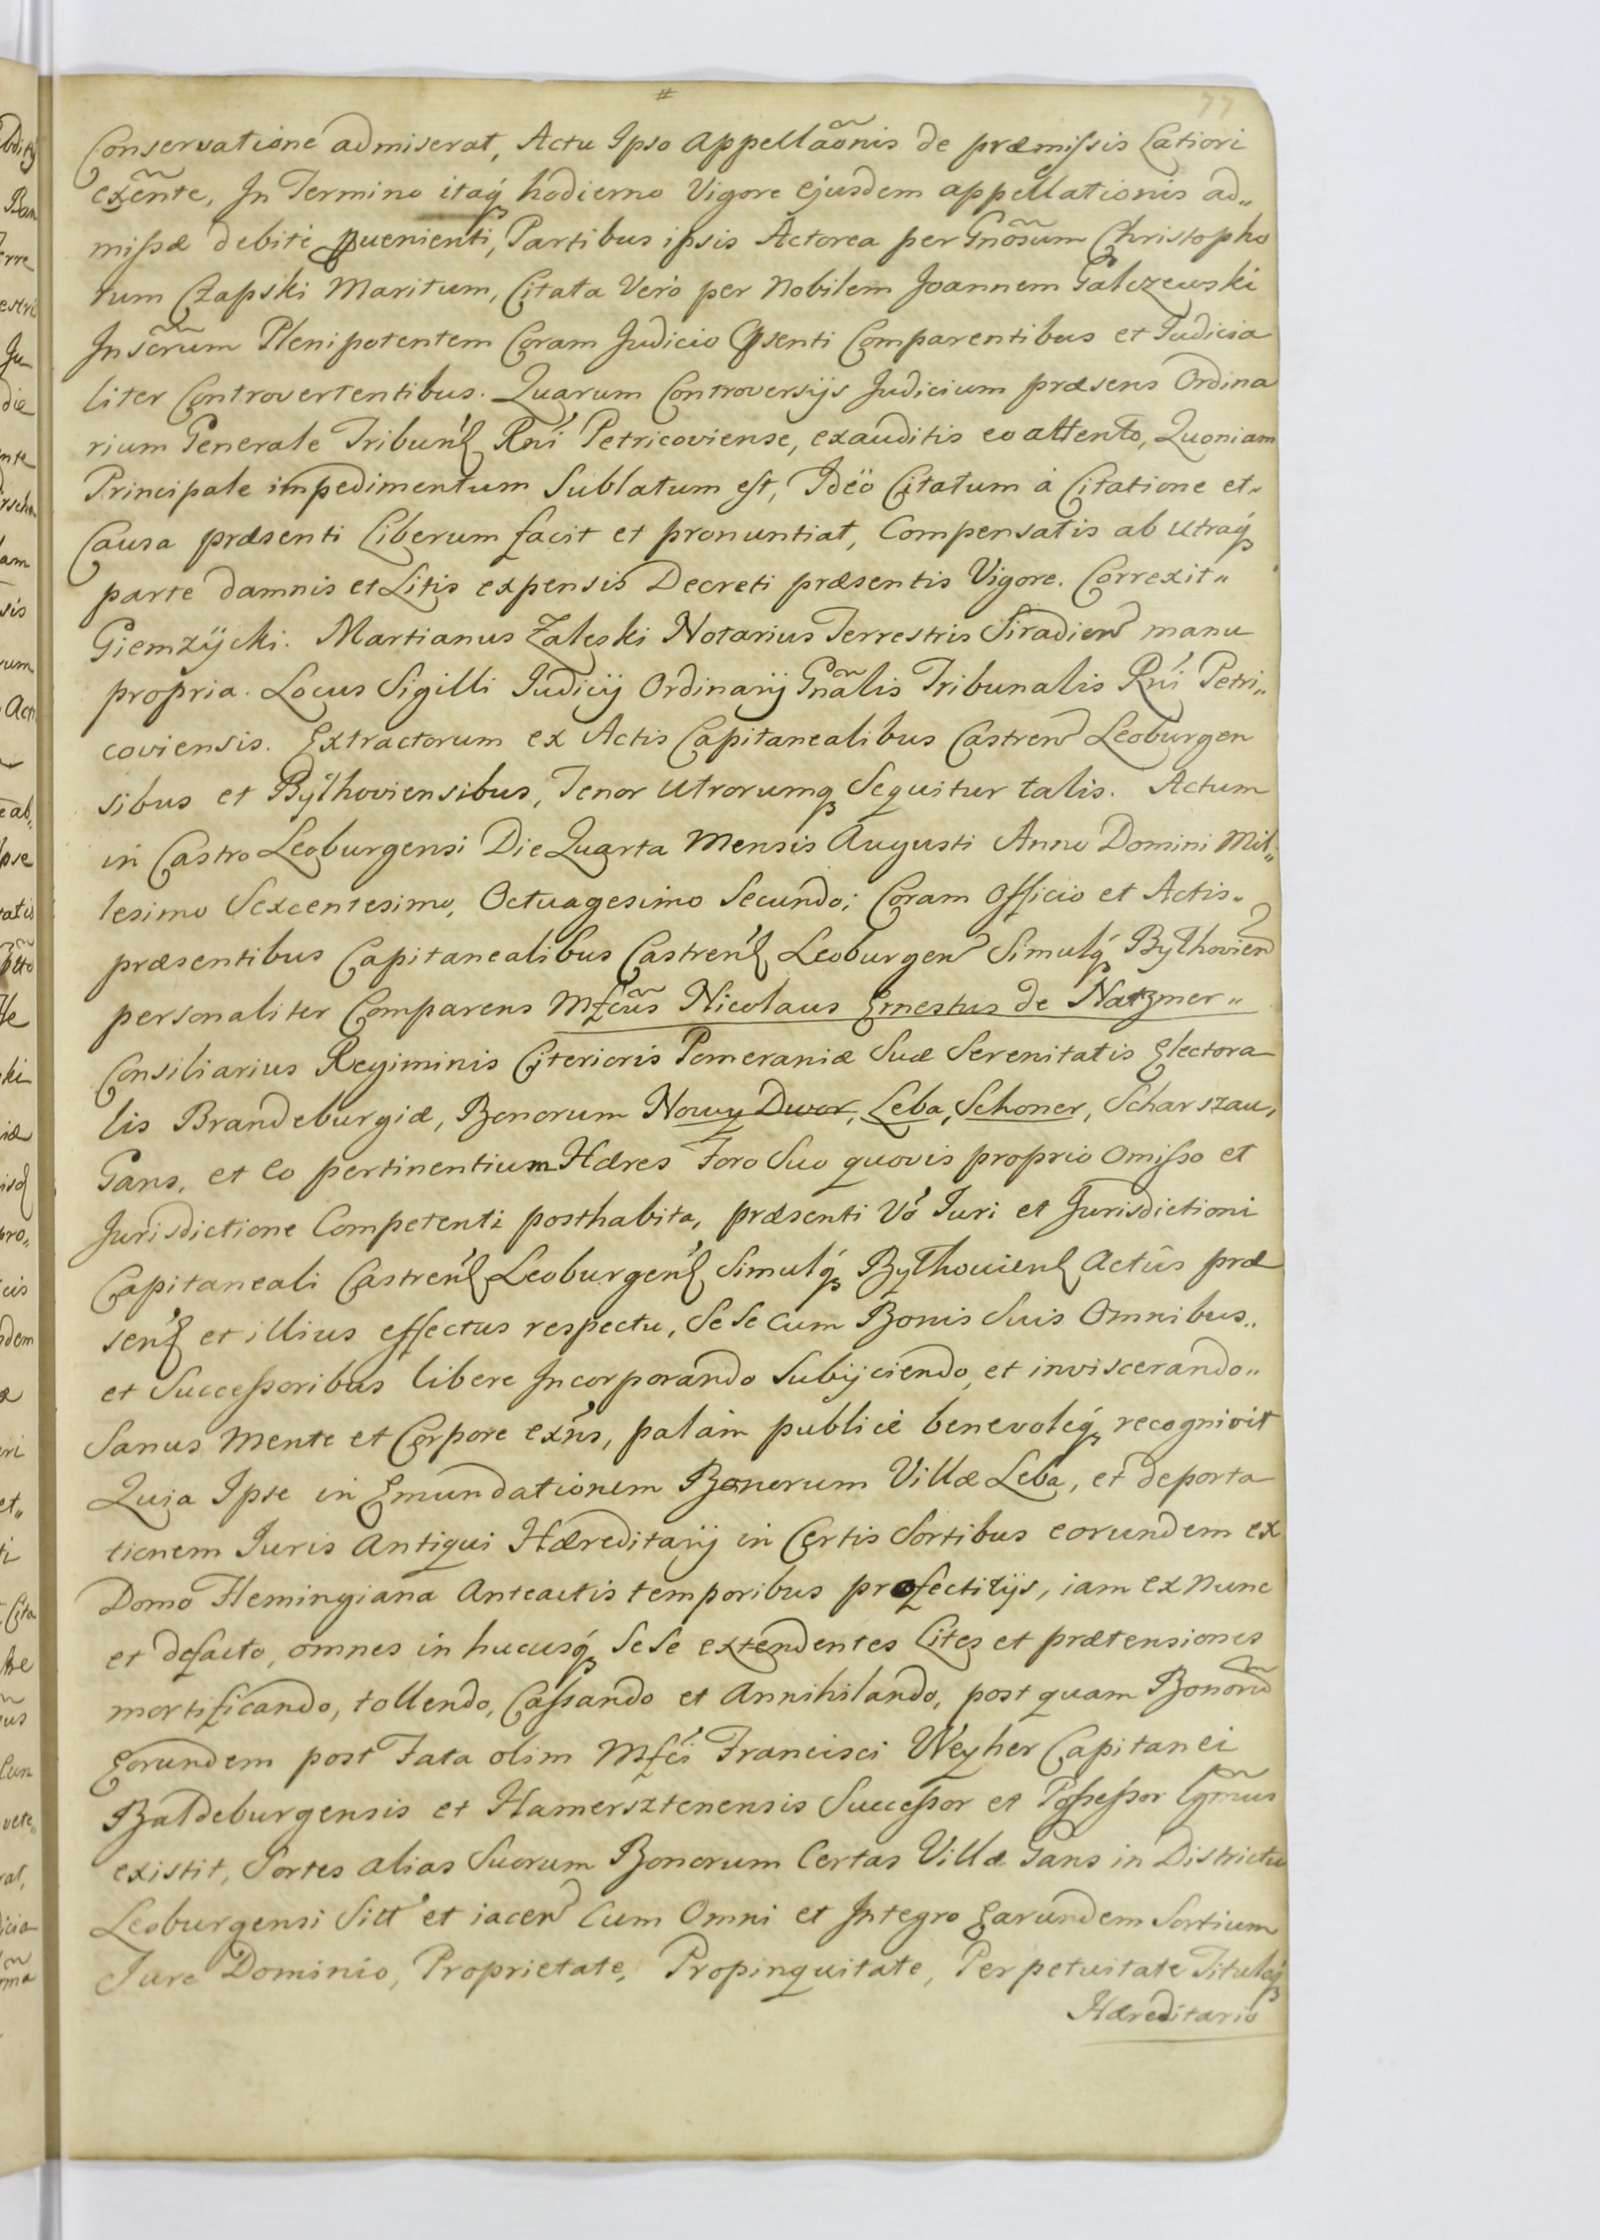 #
77
Conservatione admiserat, Actu Ipso Appellãonis de præmissis Latiori
exẽnte, In Termino itaq hodierno Vigore ejusdem appellationis ad„
missæ debitè pvenienti, Partibus ipsis Actorea per Gnõsum Christopho
rum Czapski Maritum, Citata Verò per Nobilem Joannem Galczewski
Insẽrum Plenipotentem Coram Judicio Psenti Comparentibus et Judicia
liter Controvertentibus. Quarum Controversijs Judicium præsens Ordina
rium Generale Tribunl Rni Petricoviense, exauditis eo attento, Quoniam
Principale impedimentum Sublatum est, Ideo Citatum à Citatione et„
Causa præsenti Liberum facit et pronuntiat, Compensatis ab utraq
parte damnis et Litis expensis Decreti præsentis Vigore. Correxit„
Giemzÿcki. Martianus Zaleski Notarius Terrestris Siradien manu
propria. Locus Sigilli Judicij Ordinarij Gnãlis Tribunalis Rni Petri„
coviensis. Extractorum ex Actis Capitanealibus Castren Leoburgen
sibus et Bythoviensibus, Tenor Utrorumq Sequitur talis. Actum
in Castro Leoburgensi Die Quarta Mensis Augusti Anno Domini Mil„
lesimo Sexcentesimo, Octuagesimo Secundo; Coram Officio et Actis„
præsentibus Capitanealibus Castren Leoburgen Simulq Bythovien
personaliter Comparens Mfcus Nicolaus Ernestus de Natzmer„
Consiliarius Regiminis Citerioris Pomeraniæ Suæ Serenitatis Electora
lis Brandeburgiæ, Bonorum Nowy Dwor, Leba, Schoner, Scharszau,
Gans, et eo pertinentium Hæres Foro Suo quovis proprio omisso et
Jurisdictione Competenti posthabita, præsenti Vo Juri et Jurisdictioni
Capitaneali Castren Leoburgen Simulq Bythovien Actûs præ
sen et illius effectus respectu, Se Se cum Bonis Suis Omnibus„
et Successoribus libere Incorporando Subijciendo, et inviscerando„
Sanus Mente et Corpore exns, palàm publicè benevoleq recognivit
Quia Ipse in Emundationem Bonorum Villæ Leba, et deporta
tionem Juris Antiqui Hæreditarij in Certis Sortibus eorundem ex
Domo Flemingiana Anteactis temporibus profectitijs, iam ex nunc
et defacto, omnes in hucusq Se Se extendentes Lites et prætensiones
mortificando, tollendo, Cassando et Annihilando, post quam Bonoru
Eorundem post Fata olim Mfci Francisci Weyher Capitanei
Baldeburgensis et Hamersztenensis Successor et Possessor Lgmus
existit, Sortes alias Suorum Bonorum Certas Villæ Gans in Districtu
Leoburgensi Sitt et iacen Cum Omni et Integro Earundem Sortium
Jure Dominio, Proprietate, Propinquitate, Perpetuitate Tituloq
Hæreditario